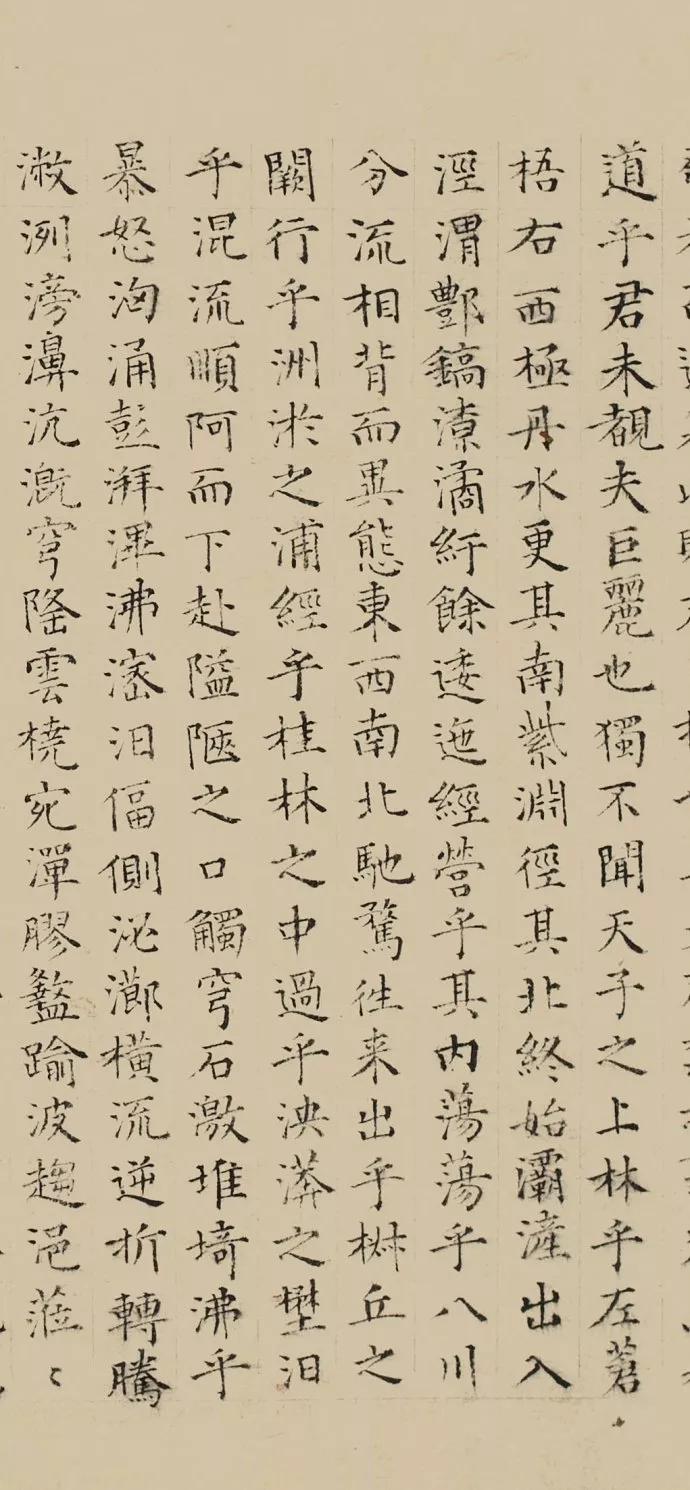 道乎君未覩夫巨麗也獨不聞天子之上林乎左蒼
梧右西極丹水更其南紫淵徑其北終始灞滻出入
涇渭酆鎬潦潏紆餘逶迤經營乎其內蕩蕩乎八川
分流相背而異態東西南北馳騖徃来出乎椒丘之
闕行乎洲淤之浦經乎桂林之中過乎泱漭之壄汩
乎混流順阿而下赴隘陿之口觸穹石激堆埼沸乎
暴怒洶涌彭湃滭沸滵汩偪側泌瀄橫流逆折轉騰
潎洌滂濞沆溉穹隆雲橈宛潬膠盭踰波趨浥蒞〻